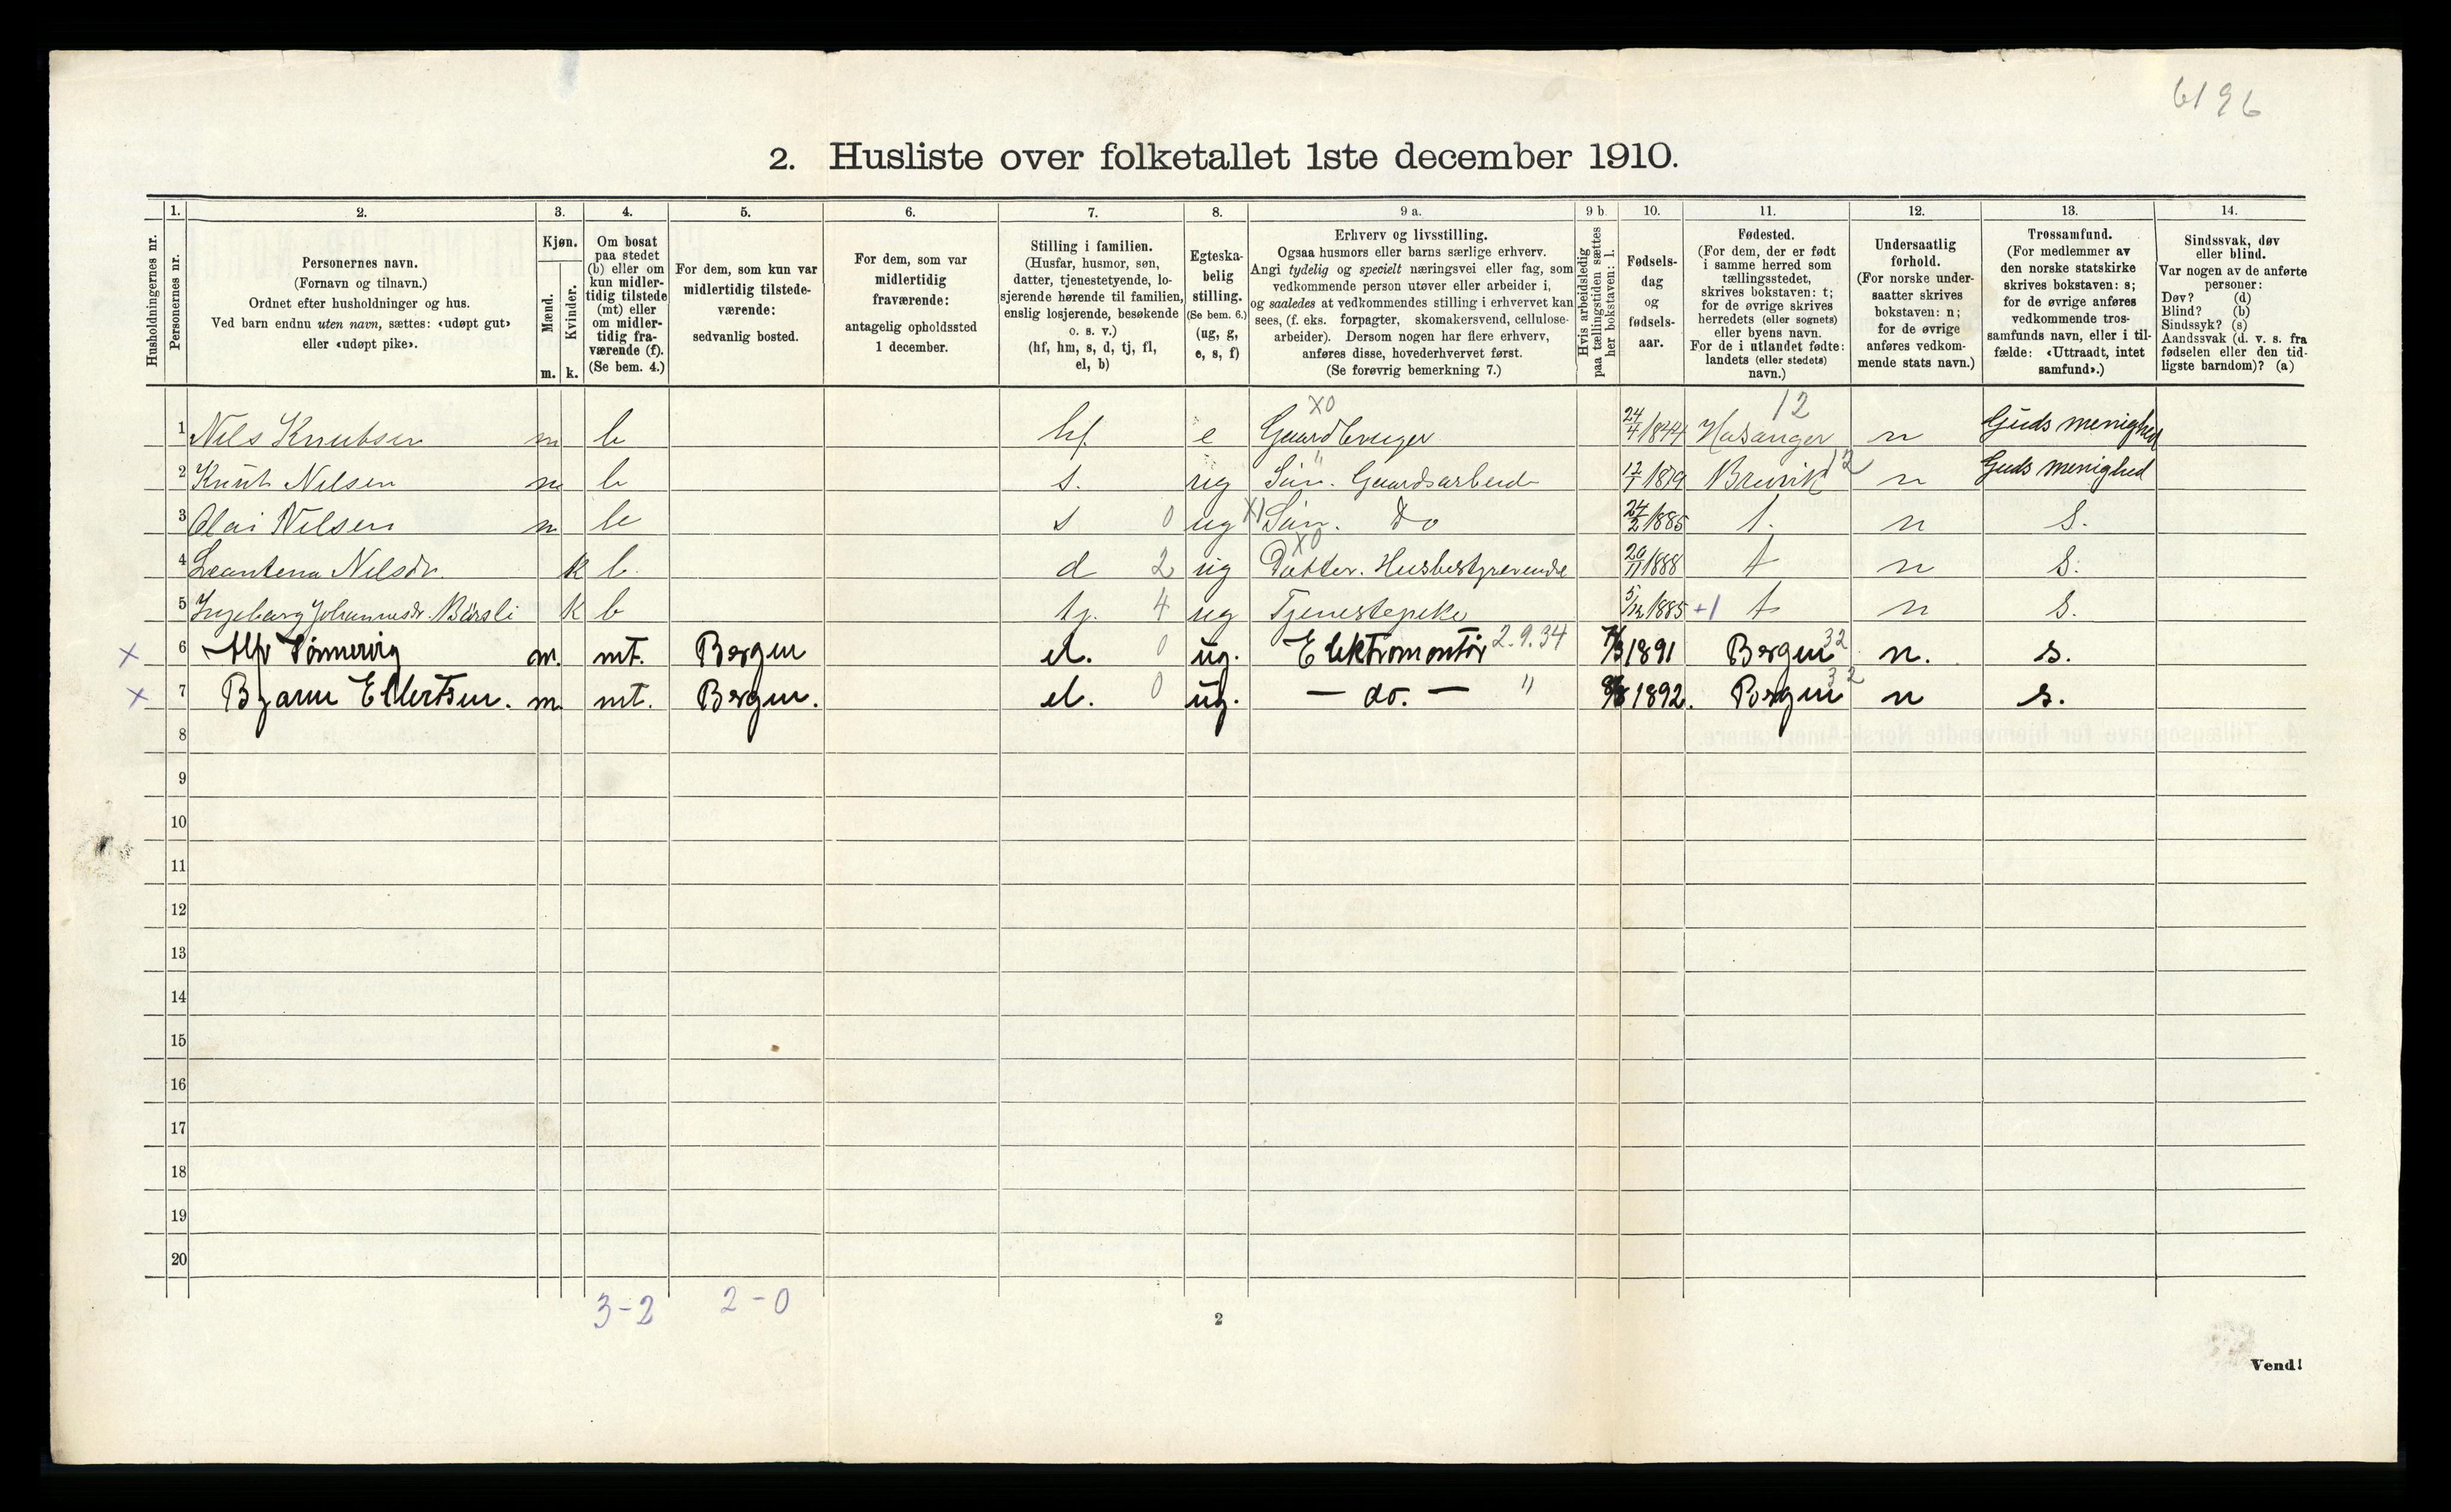 6196
2. Husliste over folketallet 1ste december 1910.
Husholdningernes nr.
1.
Personernes nr.
2.
Personernes navn.
(Fornavn og tilnavn.)
Ordnet efter husholdninger og hus.
Ved barn endnu uten navn, sættes: «udøpt gut»
eller «udøpt pike».
3.
Kjøn.
Mænd.
Kvinder.
m. k.
4.
Om bosat
paa stedet
(b) eller om
kun midler-
tidig tilstede
(mt) eller
om midler-
tidig fra-
værende (f).
(Se bem. 4.)
5.
For dem, som kun var
midlertidig tilstede-
værende:
sedvanlig bosted.
6.
For dem, som var
midlertidig
fraværende:
antagelig opholdssted
1 december.
7.
Stilling i familien.
(Husfar, husmor, søn,
datter, tjenestetyende, lo-
sjerende hørende til familien,
enslig losjerende, besøkende
o. s. v.)
(hf, hm, s, d, tj, fl,
el, b)
8.
Egteska-
belig
stilling.
(Se bem. 6.)
(ug, g,
e, s, f)
9 a.
Erhverv og livsstilling.
Ogsaa husmors eller barns særlige erhverv.
Angi tydelig og specielt næringsvei eller fag, som
vedkommende person utøver eller arbeider i,
og saaledes at vedkommendes stilling i erhvervet kan
sees, (f. eks. forpagter, skomakersvend, cellulose-
arbeider). Dersom nogen har flere erhverv,
anføres disse, hovederhvervet først.
(Se forøvrig bemerkning 7.)
9 b.
Hvis arbeidsledig
paa tællingstiden sættes
her bokstaven: l.
10.
Fødsels-
dag
og
fødsels-
aar.
11.
Fødested.
(For dem, der er født
i samme herred som
tællingsstedet,
skrives bokstaven: t;
for de øvrige skrives
herredets (eller sognets)
eller byens navn.
For de i utlandet fødte:
landets (eller stedets)
navn.)
12.
Undersaatlig
forhold.
(For norske under-
saatter skrives
bokstaven: n;
for de øvrige
anføres vedkom-
mende stats navn.)
13.
Trossamfund.
(For medlemmer av
den norske statskirke
skrives bokstaven: s;
for de øvrige anføres
vedkommende tros-
samfunds navn, eller i til-
fælde: «Uttraadt, intet
samfund».)
14.
Sindssvak, døv
eller blind.
Var nogen av de anførte
personer:
Døv? (d)
Blind? (b)
Sindssyk? (s)
Aandssvak (d. v. s. fra
fødselen eller den tid-
ligste barndom)? (a)
X0 12
1 Nils Knutsen m b hf e Gaardbruger 24/4 1844 Hosanger n Guds menighed
2 Knut Nilsen m b s. ug Sön. Gaardsarbeide 1879 Bruvik 12 n Guds menighed
3 Olai Nilsen m b s 0 ug X1 Sön. Do 24/2 1885 t. n S.
X0
4 Nilsdr. k b d 2 ug Datter. Husbestyrerinde 1888 t n S.
5 Ingeborg Johannesdr. Börsli k b tj. 4 ug Tjenestepike 5/12 1885 +1 t n S.
X 6 Alf m. mt. Bergen el. 0 ug. Elektromontör 2.9.34 1891 Bergen 32 n. s.
X 7 Bjarne Ellertsen. m mt. Bergen. el. 0 ug. — do. — " 1892. Bergen 32 n s.
8
9
10
11
12
13
14
15
16
17
18
19
20
3-2 2-0
2
Vend!